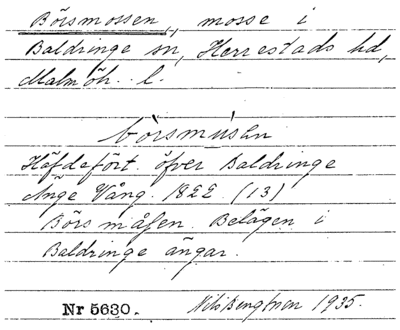 Börsmossen, mosse i
Baldringe sn, Herrestads hd,
Malmöh. l.
bòrsmúsan
Häfdefört. öfver Baldringe
Änge Vång. 1822 (13)
Börs måsen. Belägen i
Baldringe ängar.
Nr 5630. Nils Bengtsson 1935.